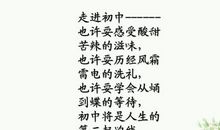 走进初中------
也许要感受酸甜
苦辣的滋味，
也许要历经风霜
雷电的洗礼，
也许要学会从蛹
到蝶的等待，
初中将是人生的